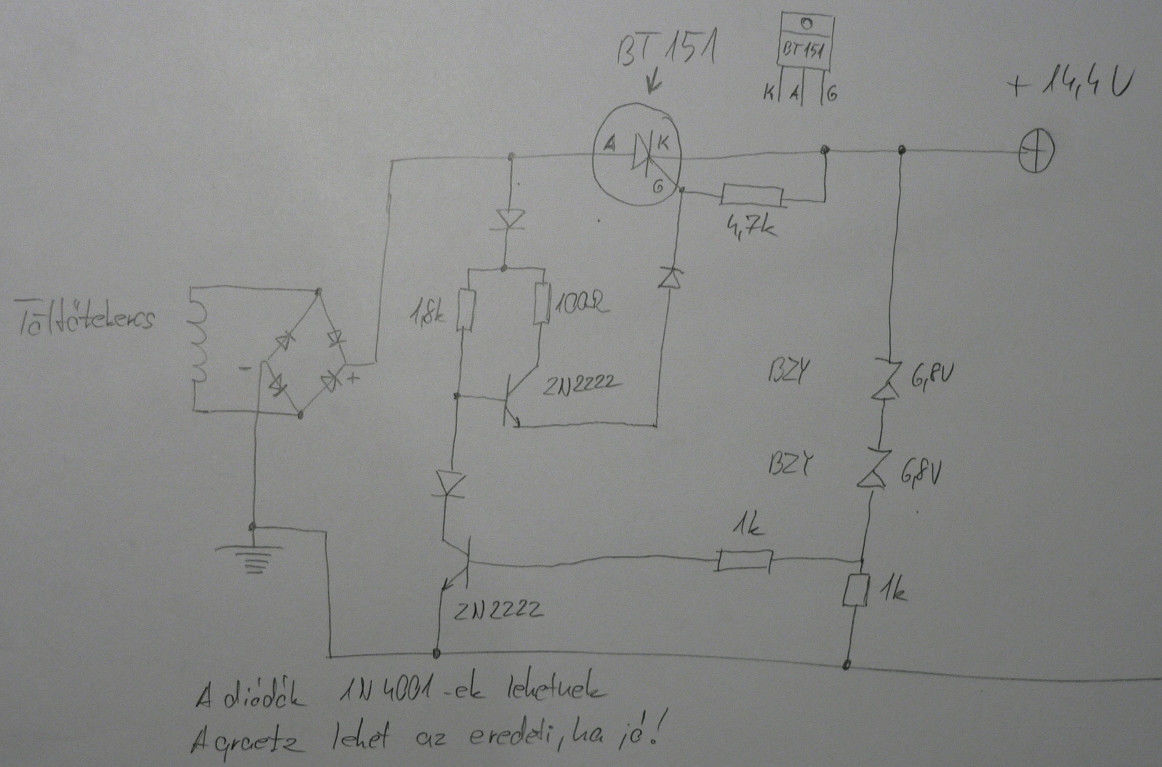 BT151
BT151
K A G
+ 14,4V
A K
G
4,7k
Töltőtekercs
1,8k
100Ω
- +
2N2222
BZY 6,8V
BZY 6,8V
1k
1k
2N2222
A diódák 1N4001-ek lehetnek
A graetz lehet az eredeti, ha jó!